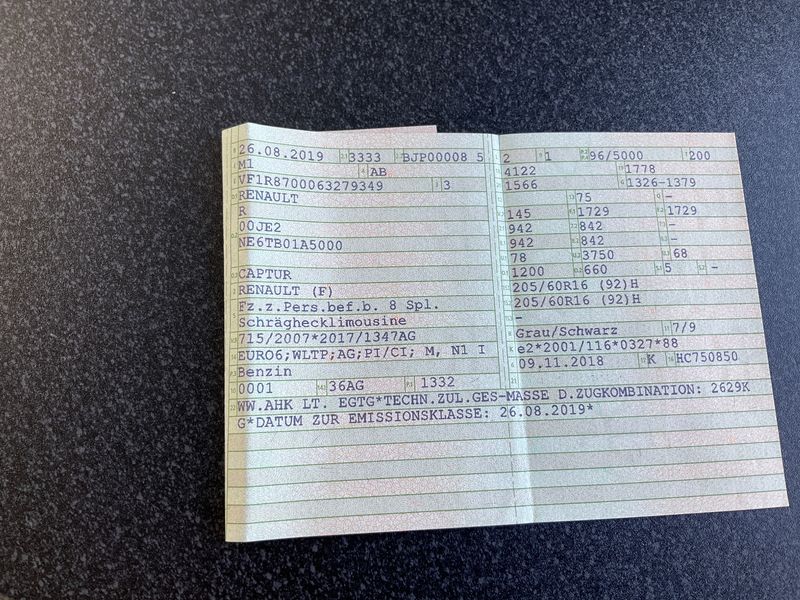 26.08.2019 3333 BJP00008 5
M1 AB
VF1R8700063279349 3
RENAULT
R
00JE2
NE6TB01A5000
CAPTUR
RENAULT (F)
Fz.z.Pers.bef.b. 8 Spl.
Schräghecklimousine
715/2007*2017/1347AG
EURO6;WLTP;AG;PI/CI; M, N1 I
Benzin
0001 36AG 1332
2 1 96/5000 200
4122 1778
1566 1326-1379
75 -
145 1729 1729
942 842 -
942 842 -
78 3750 68
1200 660 5 -
205/60R16 (92)H
205/60R16 (92)H
-
Grau/Schwarz 7/9
e2*2001/116*0327*88
09.11.2018 K HC750850
WW.AHK LT. EGTG*TECHN.ZUL.GES-MASSE D.ZUGKOMBINATION: 2629K
G*DATUM ZUR EMISSIONSKLASSE: 26.08.2019*